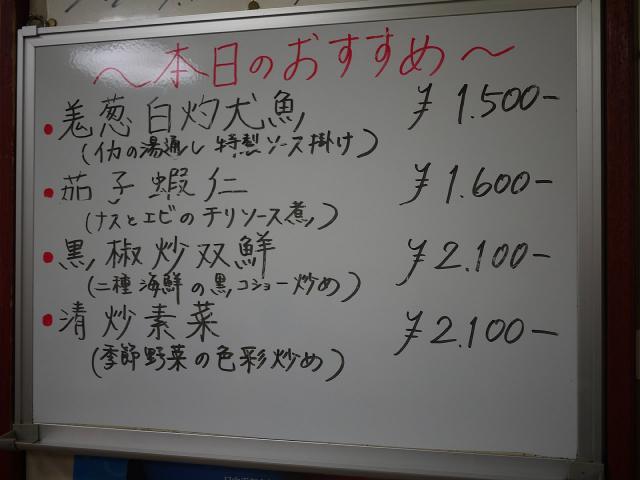 ～本日のおすすめ～
羗葱白灼犬魚 ¥1.500-
(イカの湯通し 特製ソース掛け)
茄子蝦仁 ¥1.600-
(ナスとエビのチリソース煮)
黒椒炒双鮮 ¥2.100-
(二種海鮮の黒コショー炒め)
清炒素菜 ¥2.100-
(季節野菜の色彩炒め)